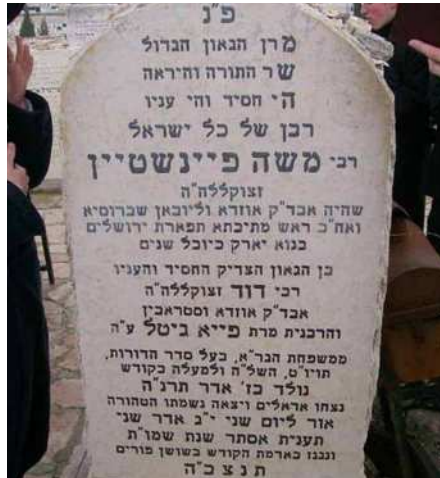 פ"נ
מרן הגאון הגדול
שר התורה והיראה
הי חסיד והי עניו
רבן של כל ישראל
רבי משה פיינשטיין
זצוקללה"ה
שהיה אבד"ק אוזדא וליובאן שברוסיא
ואח"כ ראש מתיבתא תפארת ירושלים
בנוא יארק כיובל שנים
בן הגאון הצדיק החסיד והעניו
רבי דוד זצוקללה"ה
אבד"ק אוזדא וסטראבין
והרבנית מרת פייא גיטל ע"ה
ממשפחת הגר"א, בעל סדר הדורות,
תויו"ט, השל"ה ולמעלה בקודש
נולד בז' אדר תרנ"ה
נצחו אראלים ויצאה נשמתו הטהורה
אור ליום שני י"ג אדר שני
תענית אסתר שנת שמו"ת
ונגנז באדמת הקודש בשושן פורים
תנצב"ה